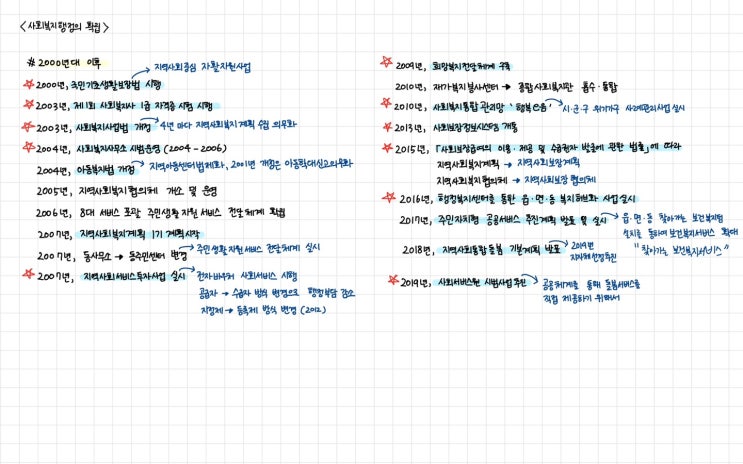 <사회복지행정의 확립>
# 2000년대 이후
지역사회중심 자활지원사업
☆ 2000년, 국민기초생활보장법 시행
☆ 2003년, 제1회 사회복지사 1급 자격증 시험 시행
☆ 2003년, 사회복지사업법 개정 → 4년 마다 지역사회복지계획 수립 의무화
☆ 2004년, 사회복지사무소 시범운영 (2004 - 2006)
2004년, 아동복지법 개정 → 지역아동센터법제화, 2001년 개정은 아동학대신고의무화
2005년, 지역사회복지협의체 개소 및 운영
2006년, 8대 서비스 포괄 주민생활 지원 서비스 전달체계 확립
2007년, 지역사회복지계획 1기 계획시작
2007년, 동사무소 → 동주민센터 변경 → 주민생활지원서비스 전달체계 실시
☆ 2007년, 지역사회서비스투자사업 실시 → 전자바우처 사회서비스 시행
공급자 → 수급자 방식 변경으로 행정부담 감소
지정제 → 등록제 방식 변경 (2012)
☆ 2009년, 희망복지전달체계 구축
2010년, 재가복지봉사센터 → 종합사회복지관 흡수·통합
☆ 2010년, 사회복지통합관리망 '행복e음' → 시·군·구 위기가구 사례관리사업 실시
☆ 2013년, 사회보장정보시스템 개통
☆ 2015년, 「사회보장급여의 이용·제공 및 수급권자 발굴에 관한 법률」에 따라
지역사회복지계획 → 지역사회보장계획
지역사회복지협의체 → 지역사회보장협의체
☆ 2016년, 행정복지센터를 통한 읍·면·동 복지허브화 사업실시
2017년, 주민자치형 공공서비스 추진계획 발표 및 실시 → 읍·면·동 찾아가는 보건복지팀
설치를 통하여 보건복지서비스 확대
"찾아가는 보건복지서비스"
2018년, 지역사회통합돌봄 기본계획 발표 → 2019년
☆ 2019년, 사회서비스원 시범사업 추진 → 공공체계를 통해 돌봄서비스를
직접 제공하기 위해서